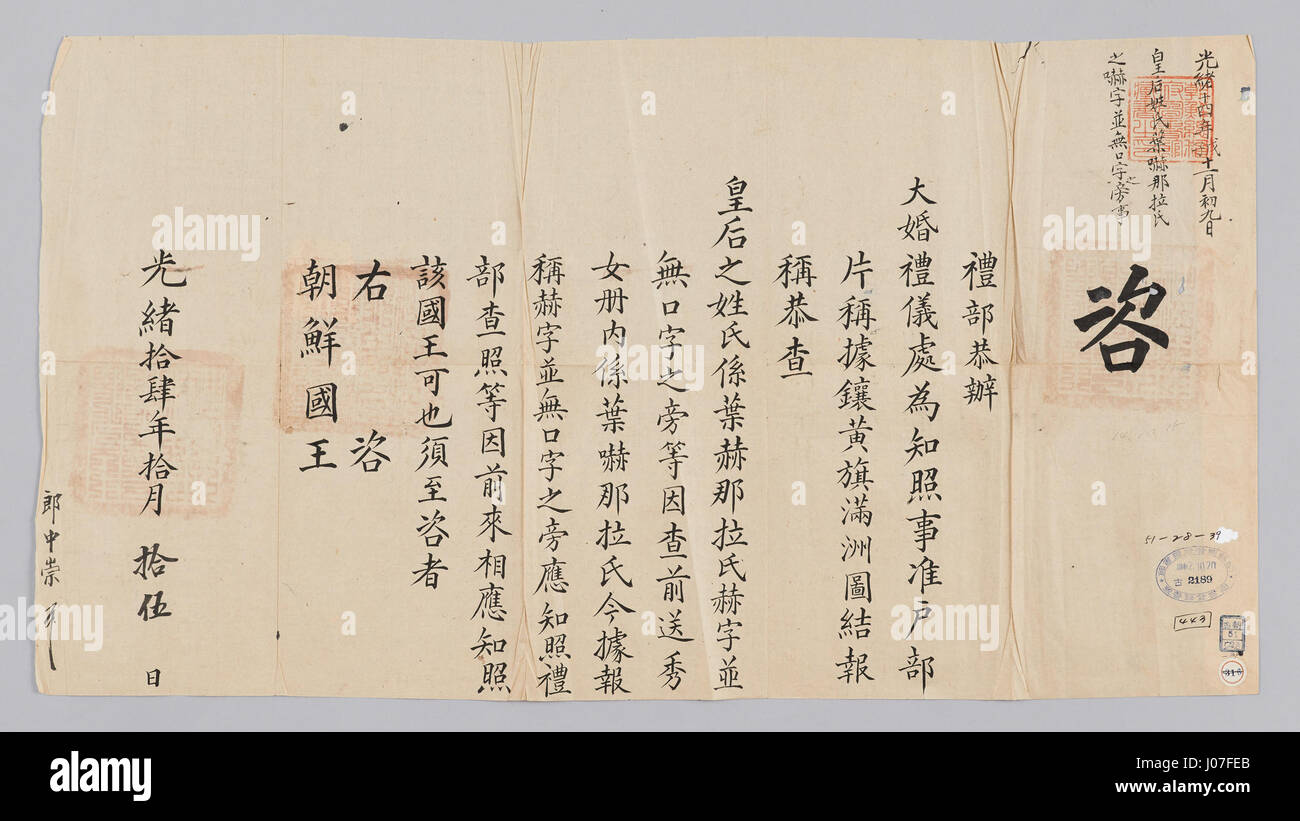 光緒十四年戊子十一月初九日
皇后姓氏葉嚇那拉氏
之嚇字並無口字之旁事
咨
禮部恭辦
大婚禮儀處為知照事准戶部
片稱據鑲黃旗滿洲圖結報
稱恭查
皇后之姓氏係葉赫那拉氏赫字並
無口字之旁等因查前送秀
女册內係葉嚇那拉氏今據報
稱赫字並無口字之旁應知照禮
部查照等因前來相應知照
該國王可也須至咨者
右咨
朝鮮國王
光緒拾肆年拾月拾伍日
郎中崇
51-28-39
古 2189
443
316
alamy
alamy
Image ID: J07FEB
www.alamy.com